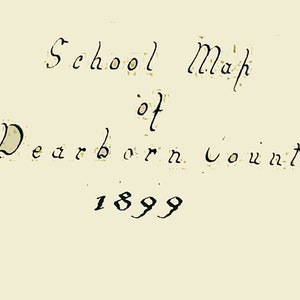 School Map
of
Dearborn Count
1899